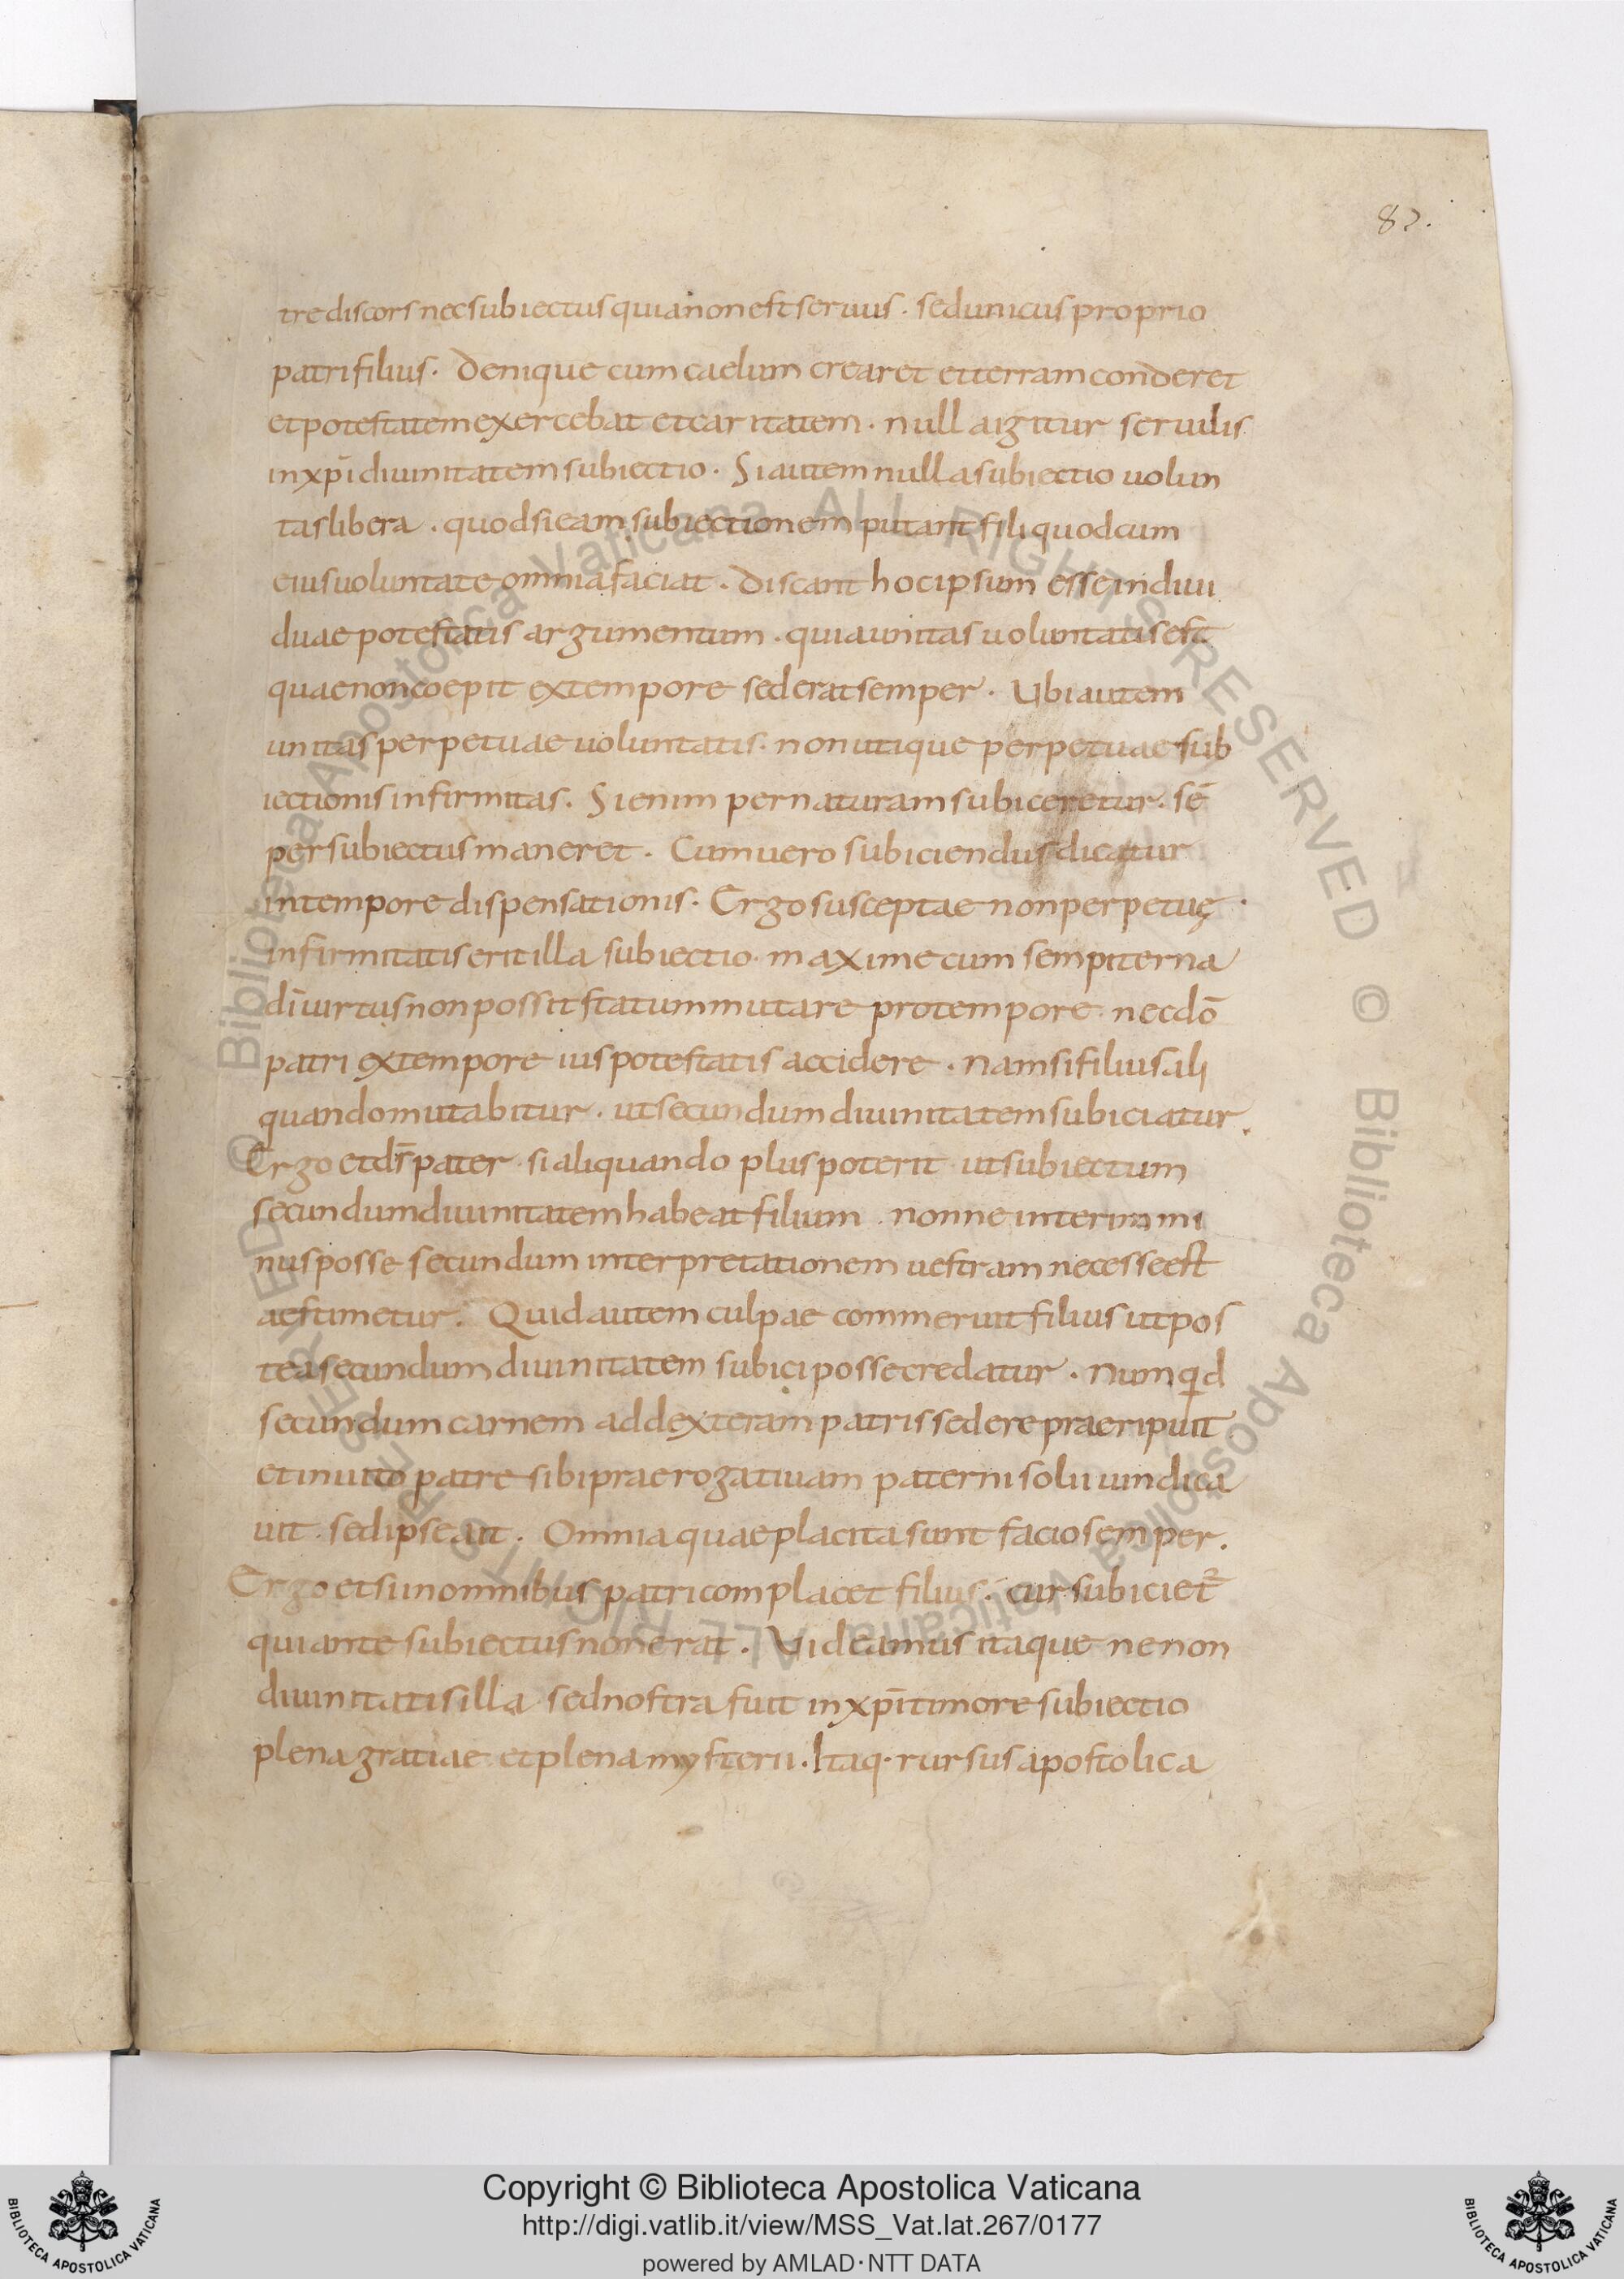 82.
tre discors nec subiectus quia non est seruus · sed unicus proprio
patri filius · Denique cum caelum crearet et terram conderet
et potestatem exercebat et caritatem · nulla igitur seruilis
in xp̄i diuinitatem subiectio · Si autem nulla subiectio uolun
tas libera · quod si eam subiectionem putant fili quod cum
eius uoluntate omnia faciat · Discant hoc ipsum esse indiui
duae potestatis argumentum · quia unitas uoluntatis est
quae non coepit ex tempore sed erat semper · Ubi autem
unitas perpetuae uoluntatis · non utique perpetuae sub
iectionis infirmitas · Si enim per naturam subiceretur · sē
per subiectus maneret · Cum uero subiciendus dicatur
in tempore dispensationis · Ergo susceptae non perpetuę ·
infirmitatis erit illa subiectio · maxime cum sempiterna
dī uirtus non possit statum mutare pro tempore · nec dō
patri ex tempore ius potestatis accidere · nam si filius ali
quando mutabitur · ut secundum diuinitatem subiciatur ·
Ergo et ds̄ pater · si aliquando plus poterit · ut subiectum
secundum diuinitatem habeat filium · nonne interim mi
nus posse secundum interpretationem uestram necesse est
aestimetur · Quid autem culpae commeruit filius ut pos
tea secundum diuinitatem subici posse credatur · numqid
secundum carnem ad dexteram patris sedere praeripuit
et inuito patre sibi praerogatiuam paterni solii uindica
uit · sed ipse ait · Omnia quae placita sunt facio semper ·
Ergo et si in omnibus patri complacet filius · cur subiciet᷑
qui ante subiectus non erat · Videamus itaque ne non
diuinitatis illa sed nostra fuit in xp̄i timore subiectio
plena gratiae et plena mysterii · Itaq· rursus apostolica
© Biblioteca Apostolica Vaticana ALL RIGHTS RESERVED © Biblioteca Apostolica Vaticana ALL RIGHTS RESERVED
BIBLIOTECA APOSTOLICA VATICANA
Copyright © Biblioteca Apostolica Vaticana
http://digi.vatlib.it/view/MSS_Vat.lat.267/0177
powered by AMLAD·NTT DATA
BIBLIOTECA APOSTOLICA VATICANA